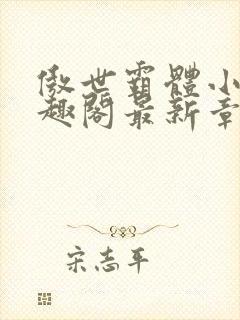 傲世霸體小
趣閣最新章
宋志平